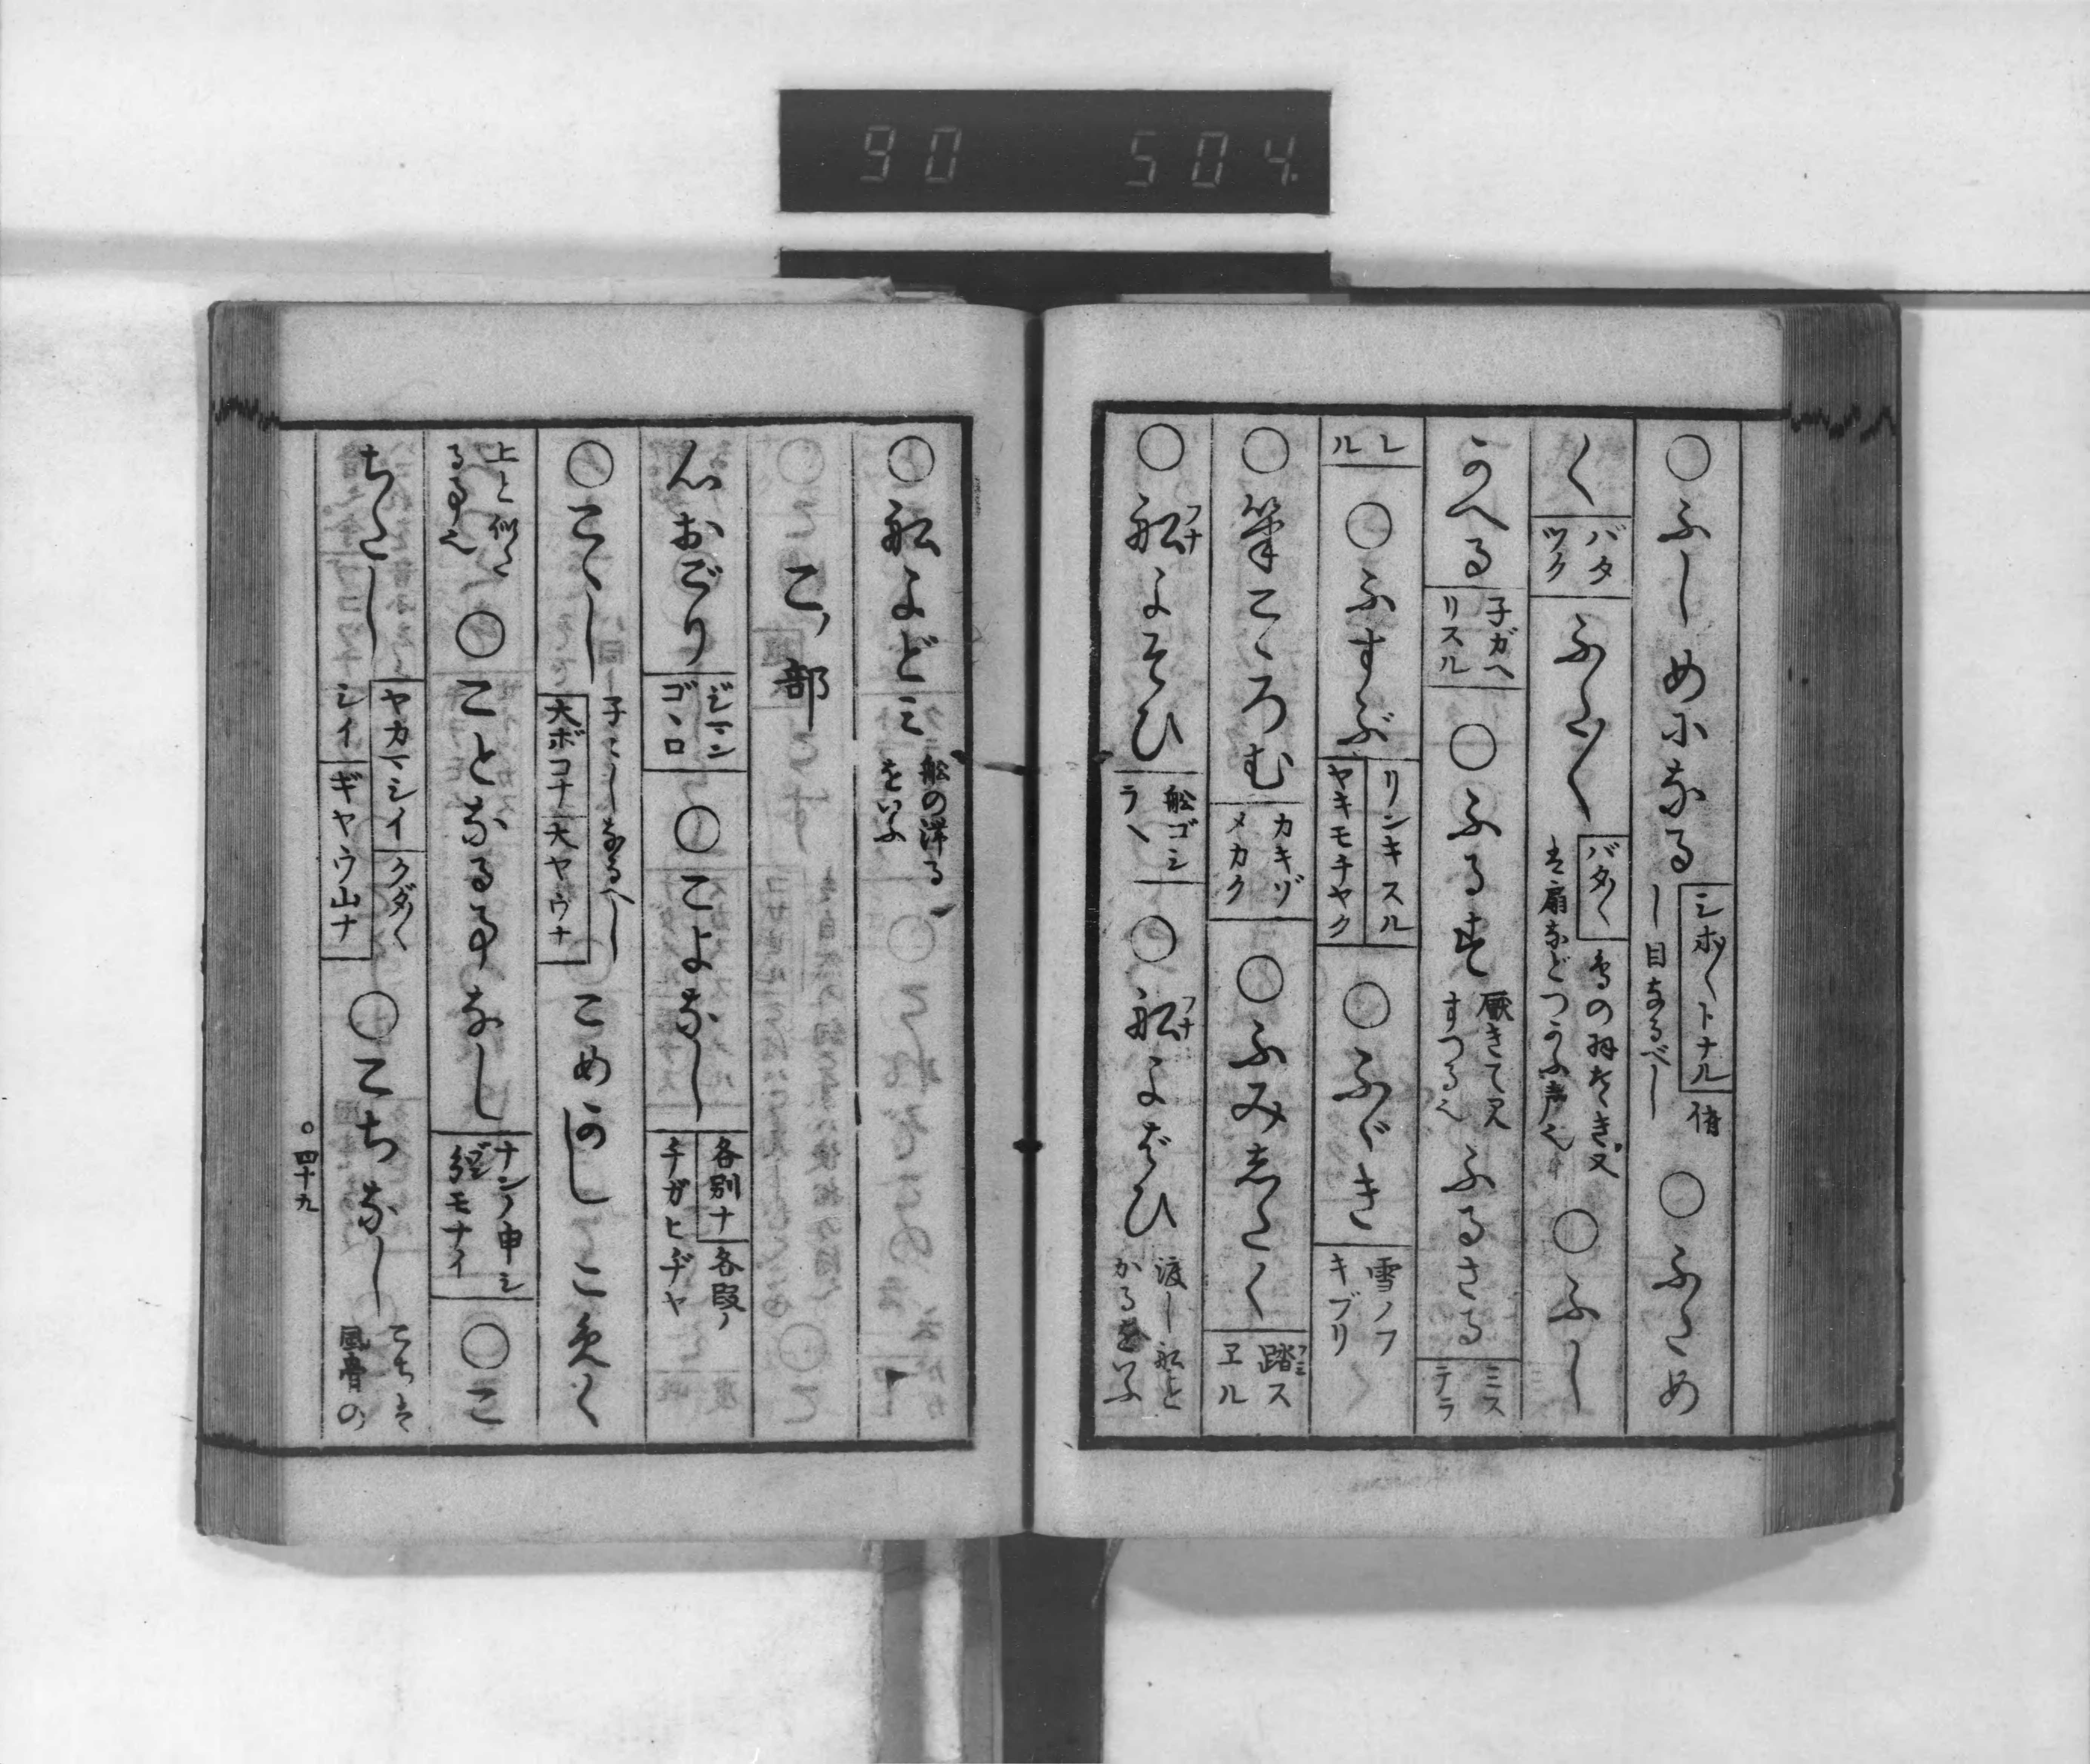 90 504.
○ふしめになる シボ〱トナル 侍 し目なるべし ○ふため
く バタツク ふた〱 バタ〱 鳥の羽たゝき又は扇などつかふ声也 ○ふし
かへる 子ガヘリスル ○ふるす 厭きて又すつる也 ふるさる ミステラ
レル ○ふすぶ リンキスル ヤキモチヤク ○ふゞき 雪ノフキブリ
○筆こゝろむ カキゾメカク ○ふみしたく 踏フミスヱル
○舩フナよそひ 舩ゴシラヘ ○舩フナよばひ 渡し舩とかるをいふ
○舩よどミ 舩の滞るをいふ
こノ部
心おごり ジマンゴヽロ ○こよなし 各別ナ 各段ノ チガヒヂヤ
○こゝし 子こしなるべし 大ボコナ 大ヤウナ こめかし こめく
上と似たる事也 ○ことなる事なし ナンノ申シ分モナイ ○こ
ちたし ヤカマシイ クダ〱シイ ギヤウ山ナ ○こちなし こちは風骨の
○四十九